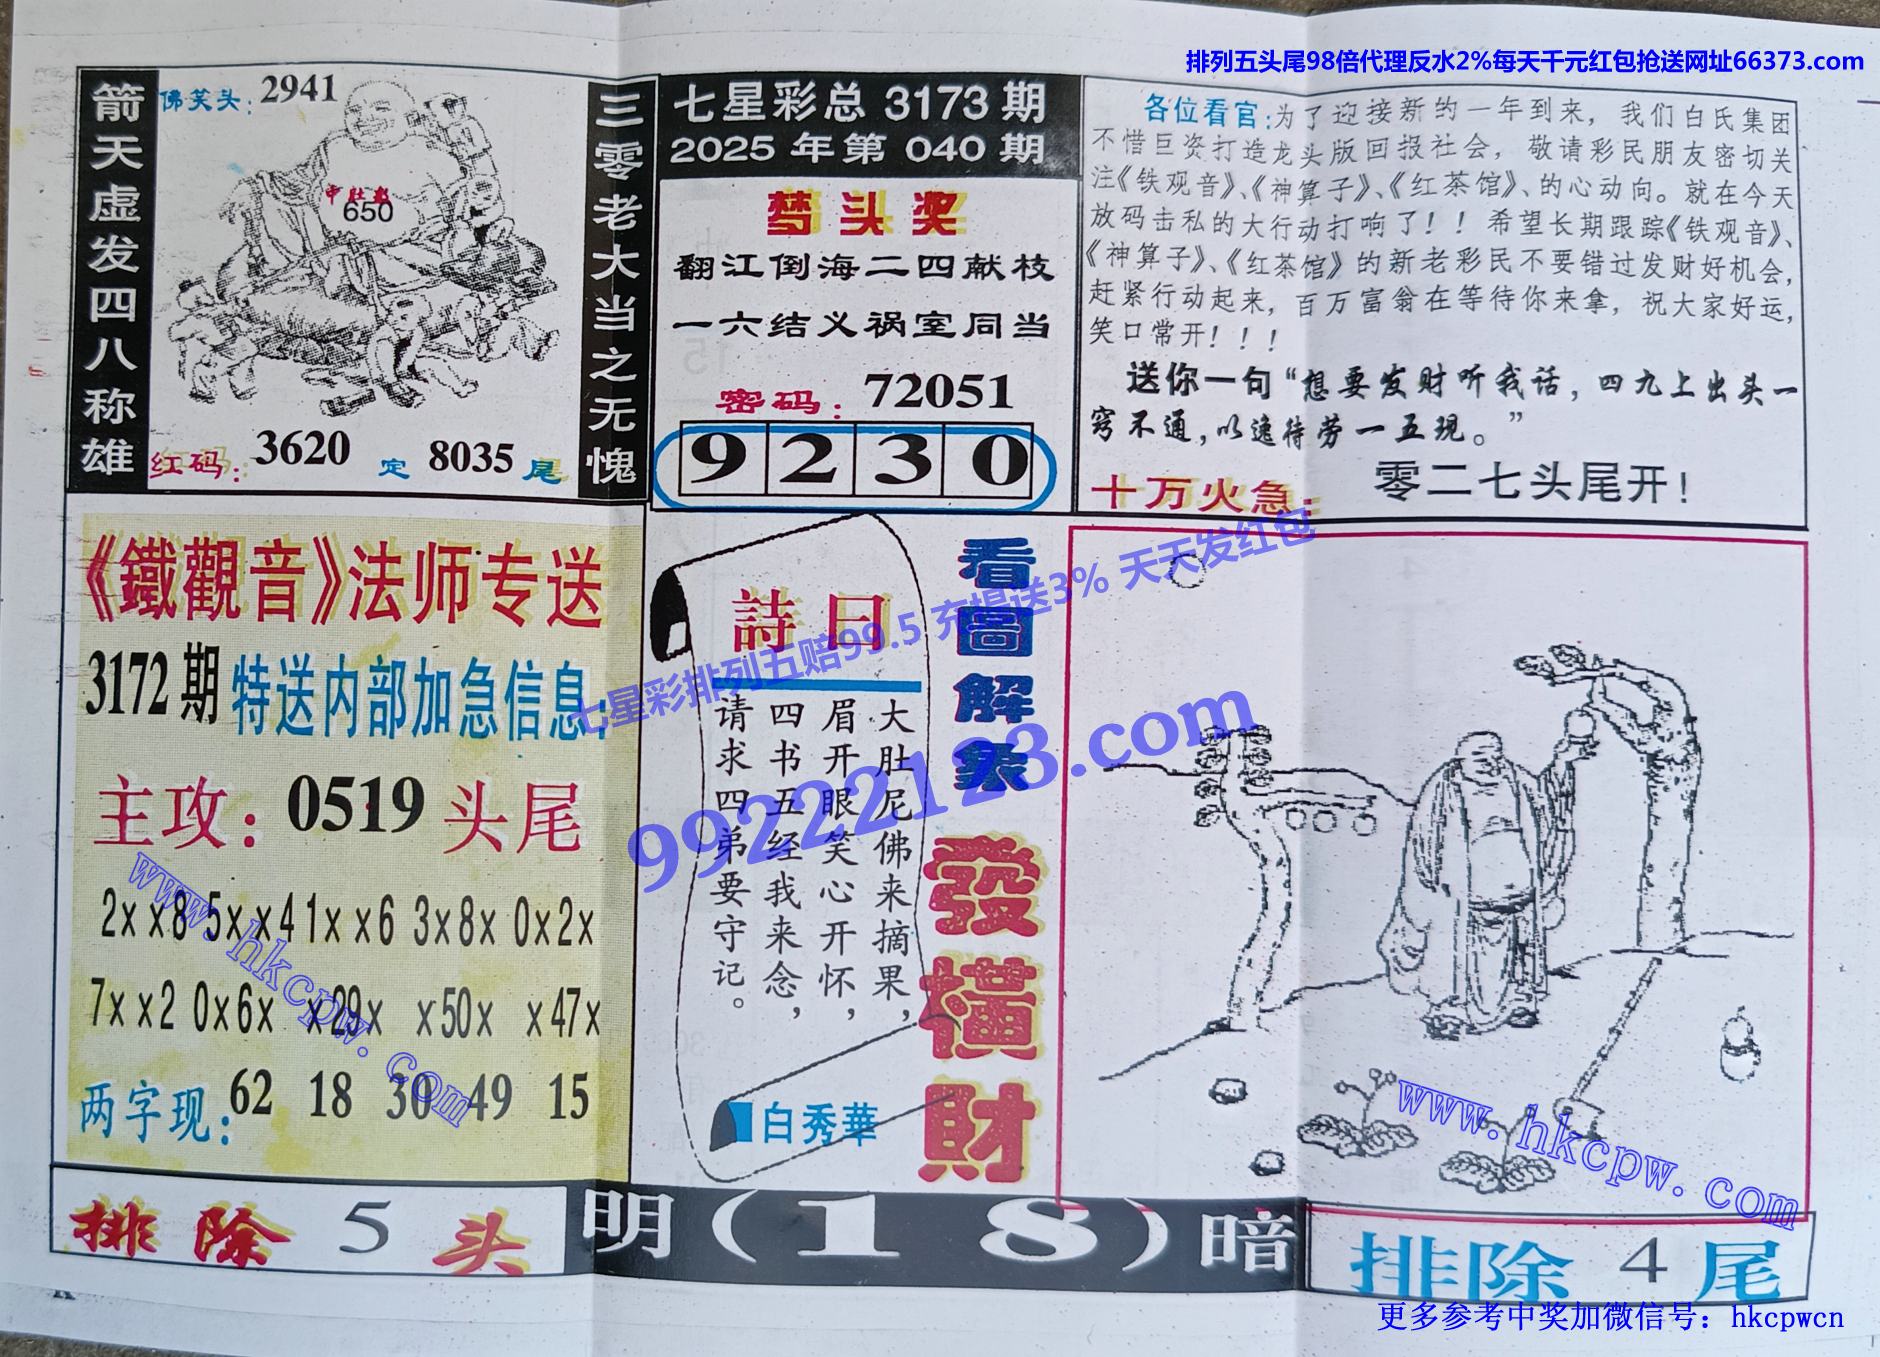 排列五头尾98倍代理反水2%每天千元红包抢送网址66373.com
箭天虚发四八称雄
佛笑头:2941
中肚彩
650
红码:3620 定 8035 尾
三零老大当之无愧
七星彩总 3173 期
2025 年第 040 期
梦头奖
翻江倒海二四献枝
一六结义祸室同当
密码:72051
9 2 3 0
各位看官:为了迎接新的一年到来，我们白氏集团
不惜巨资打造龙头版回报社会，敬请彩民朋友密切关
注《铁观音》、《神算子》、《红茶馆》、的心动向。就在今天
放码击私的大行动打响了！！希望长期跟踪《铁观音》、
《神算子》、《红茶馆》的新老彩民不要错过发财好机会，
赶紧行动起来，百万富翁在等待你来拿，祝大家好运，
笑口常开！！！
送你一句“想要发财听我话，四九上出头一
窍不通，以逸待劳一五现。”
十万火急: 零二七头尾开！
《鐵觀音》法师专送
3172 期 特送内部加急信息:
主攻: 0519 头尾
2××8 5××4 1××6 3×8× 0×2×
7××2 0×6× ×29× ×50× ×47×
两字现: 62 18 30 49 15
詩曰
大肚尼佛来摘果，
眉开眼笑心开怀，
四书五经我来念，
请求四弟要守记。
白秀華
看圖解象
發橫財
七星彩排列五赔99.5 充提送3% 天天发红包
99222123.com
www.hkcpw.com
www.hkcpw.com
排除 5 头
明(18)暗
排除 4 尾
更多参考中奖加微信号：hkcpwcn